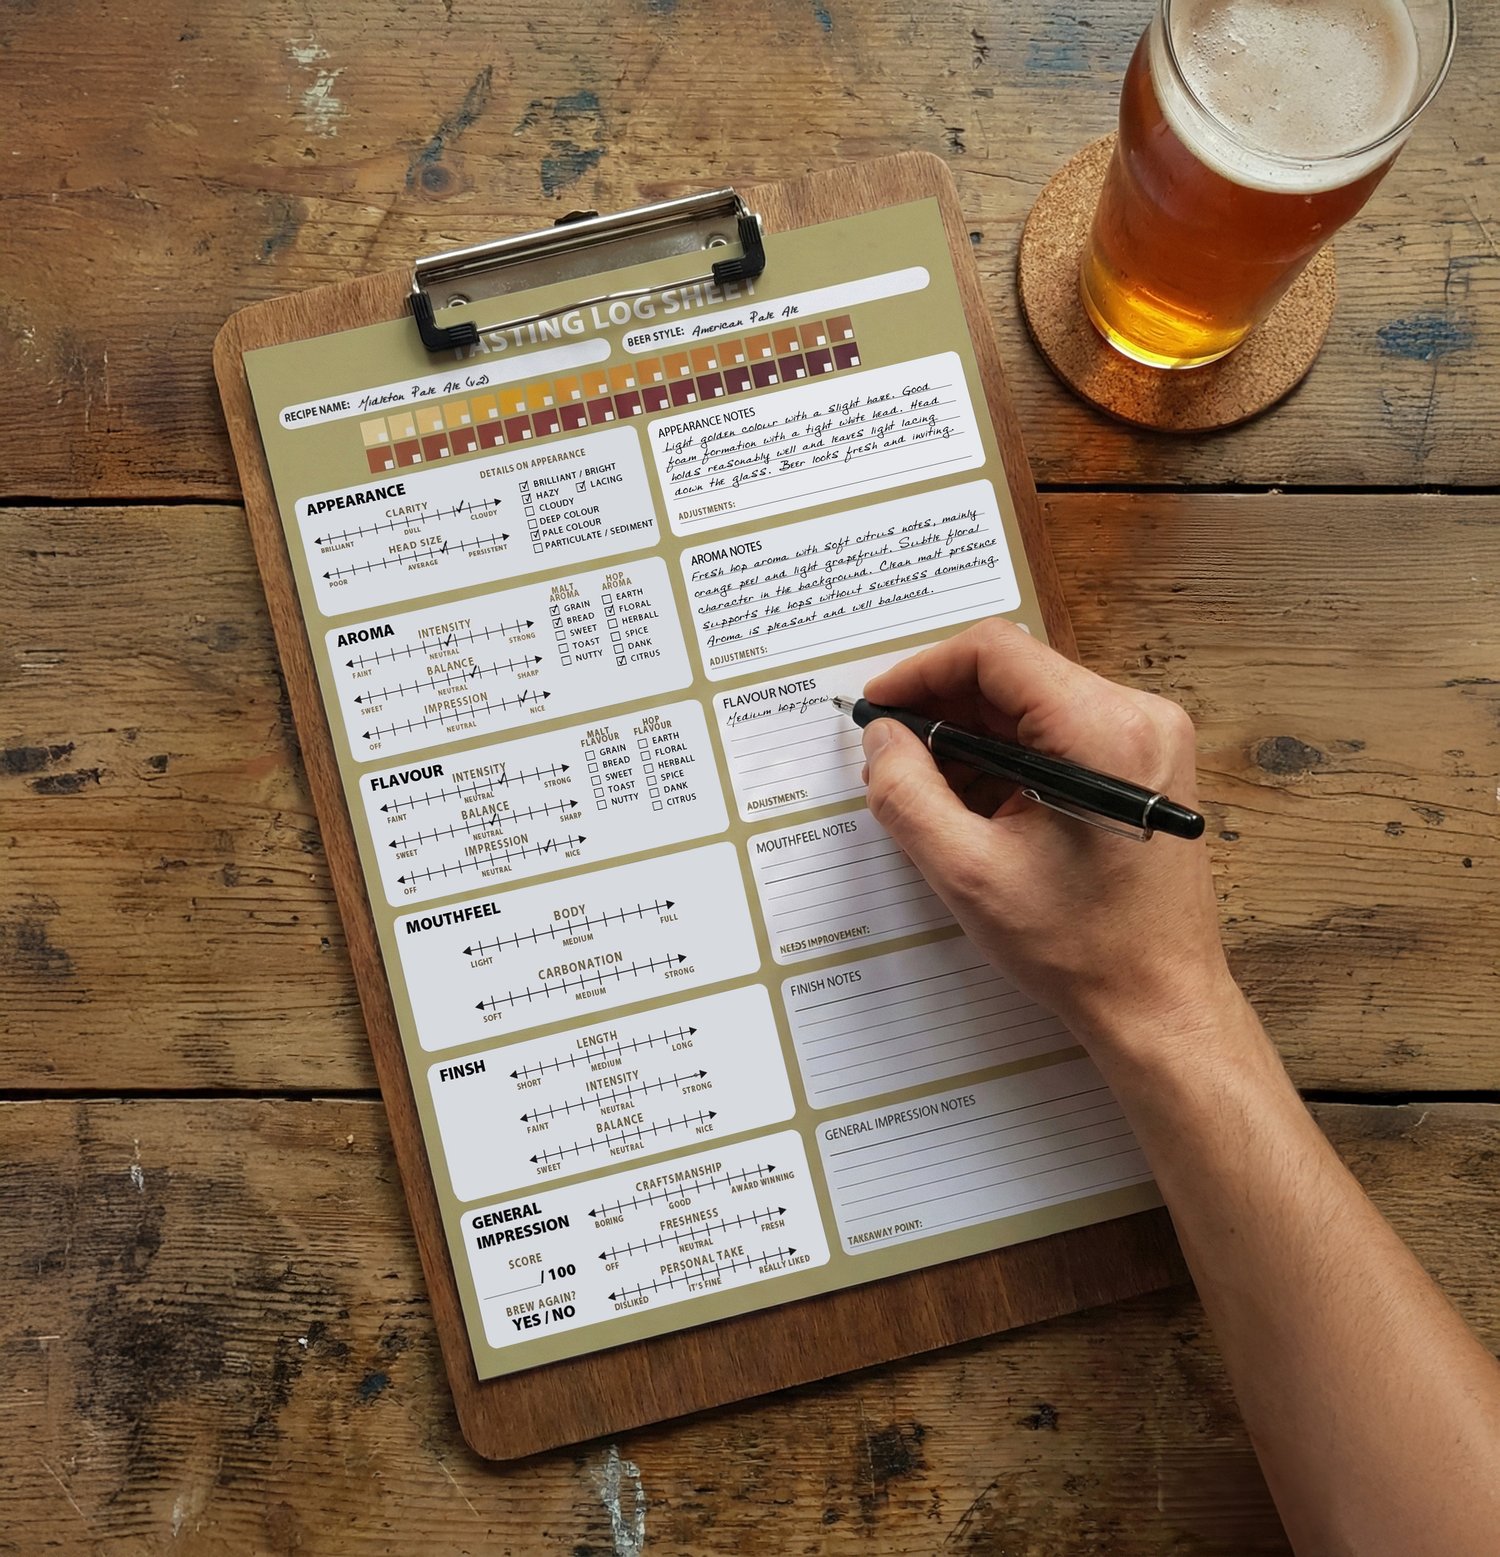 TASTING LOG SHEET
RECIPE NAME: Midleton Pale Ale (v2)
BEER STYLE: American Pale Ale
APPEARANCE
CLARITY
BRILLIANT DULL CLOUDY
HEAD SIZE
POOR AVERAGE PERSISTENT
DETAILS ON APPEARANCE
BRILLIANT / BRIGHT
HAZY LACING
CLOUDY
DEEP COLOUR
PALE COLOUR
PARTICULATE / SEDIMENT
APPEARANCE NOTES
Light golden colour with a slight haze. Good
foam formation with a tight white head. Head
holds reasonably well and leaves light lacing
down the glass. Beer looks fresh and inviting.
ADJUSTMENTS:
AROMA
INTENSITY
FAINT NEUTRAL STRONG
BALANCE
SWEET NEUTRAL SHARP
IMPRESSION
OFF NEUTRAL NICE
MALT
AROMA
GRAIN
BREAD
SWEET
TOAST
NUTTY
HOP
AROMA
EARTH
FLORAL
HERBALL
SPICE
DANK
CITRUS
AROMA NOTES
Fresh hop aroma with soft citrus notes, mainly
orange peel and light grapefruit. Subtle floral
character in the background. Clean malt presence
supports the hops without sweetness dominating.
Aroma is pleasant and well balanced.
ADJUSTMENTS:
FLAVOUR
INTENSITY
FAINT NEUTRAL STRONG
BALANCE
SWEET NEUTRAL SHARP
IMPRESSION
OFF NEUTRAL NICE
MALT
FLAVOUR
GRAIN
BREAD
SWEET
TOAST
NUTTY
HOP
FLAVOUR
EARTH
FLORAL
HERBALL
SPICE
DANK
CITRUS
FLAVOUR NOTES
Medium hop-forw
ADJUSTMENTS:
MOUTHFEEL
BODY
LIGHT MEDIUM FULL
CARBONATION
SOFT MEDIUM STRONG
MOUTHFEEL NOTES
NEEDS IMPROVEMENT:
FINSH
LENGTH
SHORT MEDIUM LONG
INTENSITY
FAINT NEUTRAL STRONG
BALANCE
SWEET NEUTRAL NICE
FINISH NOTES
GENERAL
IMPRESSION
SCORE
/ 100
BREW AGAIN?
YES / NO
CRAFTSMANSHIP
BORING GOOD AWARD WINNING
FRESHNESS
OFF NEUTRAL FRESH
PERSONAL TAKE
DISLIKED IT'S FINE REALLY LIKED
GENERAL IMPRESSION NOTES
TAKEAWAY POINT: